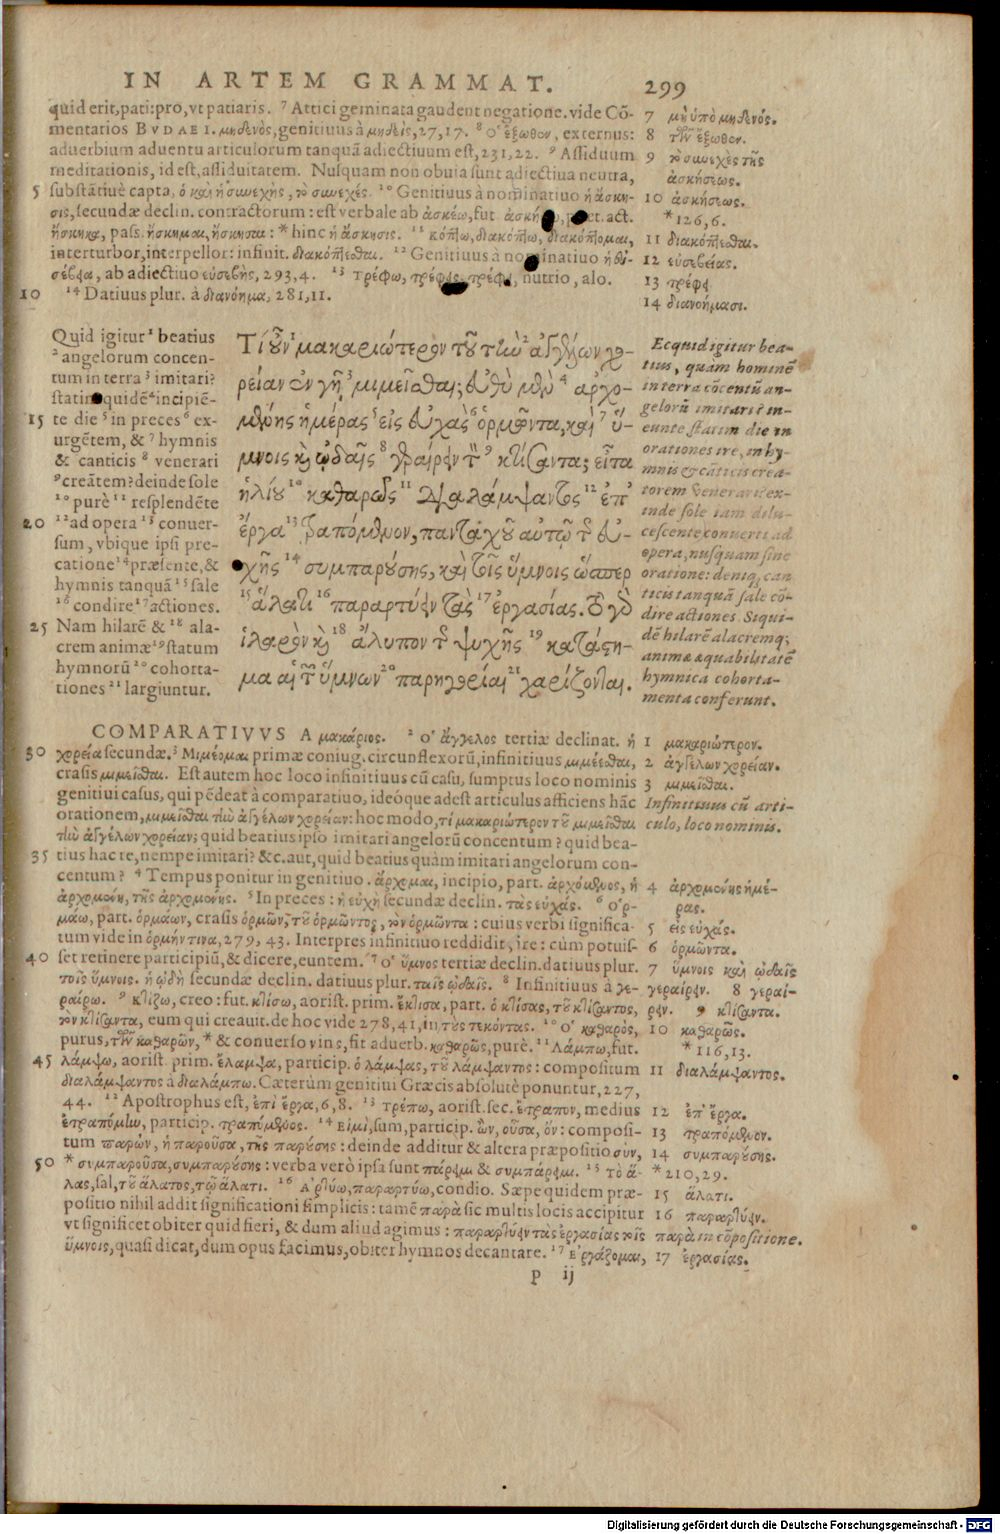 IN ARTEM GRAMMAT. 299
quid erit, pati: pro, vt patiaris. 7 Attici geminata gaudent negatione. vide Cō-
mentarios BVDAEI. μηθενὸς, genitiuus à μηθεὶς, 27, 17. 8 ὁ ἔξωθεν, externus:
aduerbium aduentu articulorum tanquā adiectiuum est, 231, 22. 9 Assiduum
meditationis, id est, assiduitatem. Nusquam non obuia sunt adiectiua neutra,
5 substātiuè capta, ὁ καὶ ἡ συνεχὴς, τὸ συνεχές. 10 Genitiuus à nominatiuo ἡ ἄσκη-
σις, secundæ declin. contractorum: est verbale ab ἀσκέω, fut. act.
ἤσκηκα, pass. ἤσκημαι, ἤσκησαι: * hinc ἡ ἄσκησις. 11 κόπτω, διακόπτω, διακόπτομαι,
interturbor, interpellor: infinit. διακόπτεσθαι. 12 Genitiuus à nominatiuo ἡ εὐ-
σέβεια, ab adiectiuo εὐσεβὴς, 293, 4. 13 τρέφω, τρέφεις, τρέφει, nutrio, alo.
10 14 Datiuus plur. à διανόημα, 281, 11.
7 μὴ ὑπὸ μηθενός.
8 τῶν ἔξωθεν.
9 τὸ συνεχὲς τῆς
ἀσκήσεως.
10 ἀσκήσεως.
* 126, 6.
11 διακόπτεσθαι.
12 εὐσεβείας.
13 τρέφει
14 διανοήμασι.
Quid igitur 1 beatius
2 angelorum concen-
tum in terra 3 imitari?
statim quidē 4 incipiē-
15 te die 5 in preces 6 ex-
urgētem, & 7 hymnis
& canticis 8 venerari
9 creātem? deinde sole
10 purè 11 resplendēte
20 12 ad opera 13 conuer-
sum, vbique ipsi pre-
catione 14 præsente, &
hymnis tanquā 15 sale
16 condire 17 actiones.
25 Nam hilarē & 18 ala-
crem animæ 19 statum
hymnorū 20 cohorta-
tiones 21 largiuntur.
Τί οὖν 1 μακαριώτερον τοῦ τὴν 2 ἀγγέλων χο-
ρείαν ἐν γῇ 3 μιμεῖσθαι; εὐθὺ μὲν 4 ἀρχο-
μένης ἡμέρας 5 εἰς εὐχὰς 6 ὁρμῶντα, καὶ 7 ὕ-
μνοις καὶ ᾠδαῖς 8 γεραίρειν τὸν 9 κτίσαντα; εἶτα
ἡλίου 10 καθαρῶς 11 διαλάμψαντος 12 ἐπ᾽
ἔργα 13 τραπόμενον, πανταχοῦ αὐτῷ τῆς εὐ-
χῆς 14 συμπαρούσης, καὶ τοῖς ὕμνοις ὥσπερ
15 ἅλατι 16 παραρτύειν τὰς 17 ἐργασίας. τὸ γὰρ
ἱλαρὸν καὶ 18 ἄλυπον τῆς ψυχῆς 19 κατάστη-
μα αἱ τῶν ὕμνων 20 παρηγορίαι 21 χαρίζονται.
Ecquid igitur bea-
tius, quàm hominē
in terra cōcentū an-
gelorū imitari? in-
eunte statim die in
orationes ire, in hy-
mnis & cāticis crea-
torem venerari? ex-
inde sole iam dilu-
cescente conuerti ad
opera, nusquam sine
oratione: deniq; can
ticis tanquā sale cō-
dire actiones. Siqui-
dē hilarē alacremq;
animæ æquabilitatē
hymnica cohorta-
menta conferunt.
COMPARATIVVS A μακάριος. 2 ὁ ἄγγελος tertiæ declinat. ἡ
30 χορεία secundæ. 3 Μιμέομαι primæ coniug. circunflexorū, infinitiuus μιμέεσθαι,
crasis μιμεῖσθαι. Est autem hoc loco infinitiuus cū casu, sumptus loco nominis
genitiui casus, qui pēdeat à comparatiuo, ideóque adest articulus afficiens hāc
orationem, μιμεῖσθαι τὴν ἀγγέλων χορείαν: hoc modo, τί μακαριώτερον τοῦ μιμεῖσθαι
τὴν ἀγγέλων χορείαν; quid beatius ipso imitari angelorū concentum? quid bea-
35 tius hac re, nempe imitari? &c. aut, quid beatius quàm imitari angelorum con-
centum? 4 Tempus ponitur in genitiuo. ἄρχομαι, incipio, part. ἀρχόμενος, ἡ
ἀρχομένη, τῆς ἀρχομένης. 5 In preces: ἡ εὐχὴ secundæ declin. τὰς εὐχάς. 6 ὁρ-
μάω, part. ὁρμάων, crasis ὁρμῶν, τοῦ ὁρμῶντος, τὸν ὁρμῶντα: cuius verbi significa-
tum vide in ὁρμήν τινα, 279, 43. Interpres infinitiuo reddidit, ire: cùm potuis-
40 set retinere participiū, & dicere, euntem. 7 ὁ ὕμνος tertiæ declin. datiuus plur.
τοῖς ὕμνοις. ἡ ᾠδὴ secundæ declin. datiuus plur. ταῖς ᾠδαῖς. 8 Infinitiuus à γε-
ραίρω. 9 κτίζω, creo: fut. κτίσω, aorist. prim. ἔκτισα, part. ὁ κτίσας, τοῦ κτίσαντος,
τὸν κτίσαντα, eum qui creauit. de hoc vide 278, 41, in τοὺς τεκόντας. 10 ὁ καθαρὸς,
purus, τῶν καθαρῶν, * & conuerso ν in ς, fit aduerb. καθαρῶς, purè. 11 Λάμπω, fut.
45 λάμψω, aorist. prim. ἔλαμψα, particip. ὁ λάμψας, τοῦ λάμψαντος: compositum
διαλάμψαντος à διαλάμπω. Cæterùm genitiui Græcis absolutè ponuntur, 227,
44. 12 Apostrophus est, ἐπὶ ἔργα, 6, 8. 13 τρέπω, aorist. sec. ἔτραπον, medius
ἐτραπόμην, particip. τραπόμενος. 14 εἰμὶ, sum, particip. ὢν, οὖσα, ὄν: composi-
tum παρὼν, ἡ παροῦσα, τῆς παρούσης: deinde additur & altera præpositio σὺν,
50 * συμπαροῦσα, συμπαρούσης: verba verò ipsa sunt πάρειμι & συμπάρειμι. 15 τὸ ἅ-
λας, sal, τοῦ ἅλατος, τῷ ἅλατι. 16 ἀρτύω, παραρτύω, condio. Sæpe quidem præ-
positio nihil addit significationi simplicis: tamē παρὰ sic multis locis accipitur
vt significet obiter quid fieri, & dum aliud agimus: παραρτύειν τὰς ἐργασίας τοῖς
ὕμνοις, quasi dicat, dum opus facimus, obiter hymnos decantare. 17 ἐργάζομαι,
1 μακαριώτερον.
2 ἀγγέλων χορείαν.
3 μιμεῖσθαι.
Infinitiuus cū arti-
culo, loco nominis.
4 ἀρχομένης ἡμέ-
ρας.
5 εἰς εὐχάς.
6 ὁρμῶντα.
7 ὕμνοις καὶ ᾠδαῖς
γεραίρειν. 8 γεραί-
ρειν. 9 κτίσαντα.
10 καθαρῶς.
* 116, 13.
11 διαλάμψαντος.
12 ἐπ᾽ ἔργα.
13 τραπόμενον.
14 συμπαρούσης.
* 210, 29.
15 ἅλατι.
16 παραρτύειν.
παρὰ in cōpositione.
17 ἐργασίας.
p ij
Digitalisierung gefördert durch die Deutsche Forschungsgemeinschaft - DFG